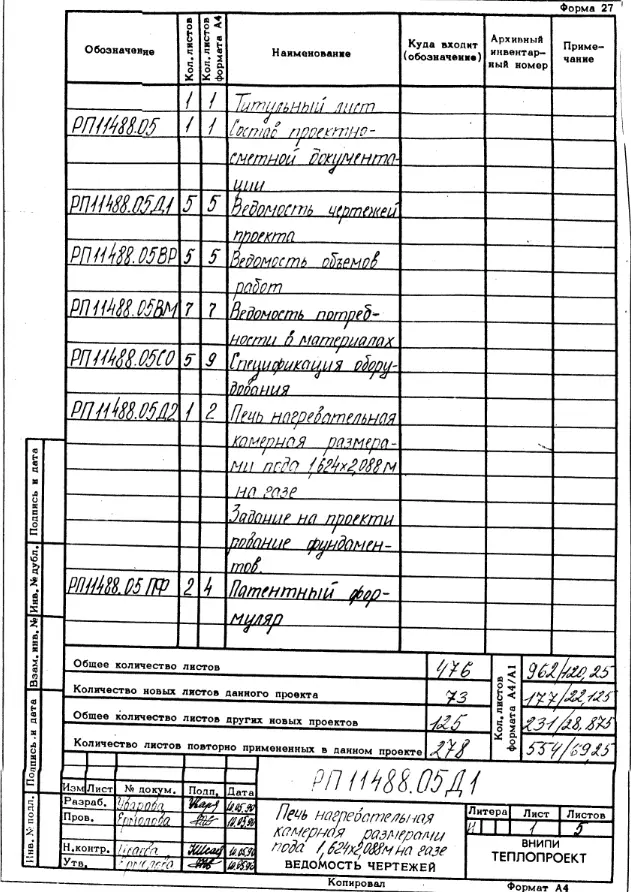 Форма 27
Обозначение Кол. листов Кол. листов формата А4 Наименование Куда входит (обозначение) Архивный инвентарный номер Примечание
1 1 Титульный лист
РП11488.05 1 1 Состав проектно-
сметной документа-
ции
РП11488.05Д1 5 5 Ведомость чертежей
проекта
РП11488.05ВР 5 5 Ведомость объемов
работ
РП11488.05ВМ 7 7 Ведомость потреб-
ности в материалах
РП11488.05СО 5 9 Спецификация обору-
дования
РП11488.05Д2 1 2 Печь нагревательная
камерная размера-
ми пода 1,624х2,088м
на газе
Задание на проекти
рование фундамен-
тов.
РП11488.05ПФ 2 4 Патентный фор-
муляр
Общее количество листов 476 Кол. листов формата А4/А1 962/120,25
Количество новых листов данного проекта 73 177/22,125
Общее количество листов других новых проектов 125 231/28,875
Количество листов повторно примененных в данном проекте 278 554/69,25
РП11488.05Д1
Изм Лист № докум. Подп. Дата
Разраб. Уварова 10.05.90
Пров. Ермолова 10.05.90
Н.контр. 10.05.90
Утв. 10.05.90
Печь нагревательная
камерная размерами
пода 1,624х2,088м на газе
ВЕДОМОСТЬ ЧЕРТЕЖЕЙ
Литера Лист Листов
И 1 5
ВНИПИ
ТЕПЛОПРОЕКТ
Копировал Формат А4
Подпись и дата
Инв. № дубл.
Взам. инв. №
Подпись и дата
Инв. № подл.